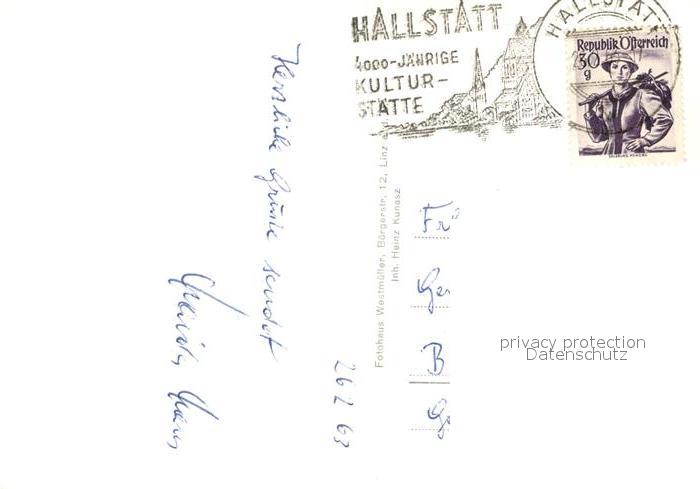 HALLSTATT
4000-JÄHRIGE
KULTUR-
STÄTTE
HALLSTATT
Republik Österreich
30
g
Herzliche Grüße sendet
26 2 63
Fotohaus Westmüller, Bürgerstr. 12, Linz
Inh. Heinz Kunasz
Fr
B
privacy protection
Datenschutz